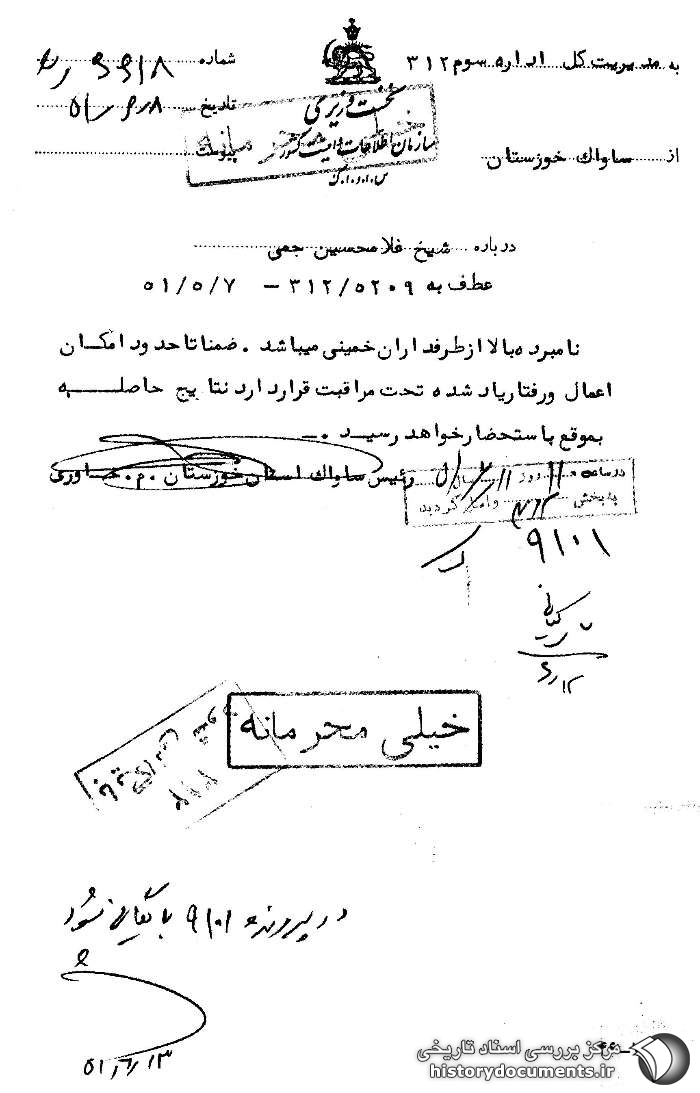 به مدیریت کل اداره سوم ۳۱۲
شماره
نخست وزیری
تاریخ
سازمان اطلاعات و امنیت کشور
س.ا.و.ا.ک
پیوست
از ساواك خوزستان
خیلی محرمانه
درباره شیخ غلامحسین جمی
عطف به ۳۱۲/۵۲۰۹ – ۵۱/۵/۷
نامبرده بالا از طرفداران خمینی میباشد . ضمنا تا حدود امکان
اعمال و رفتار یاد شده تحت مراقبت قرار دارد نتایج حاصلـــه
بموقع باستحضار خواهد رسید .ــ
رئیس ساواك استان خوزستان . م . خاوری
در ساعت ۱۱ روز
به بخش ۳۱۲ واصل گردید
۹۱۰۱
خیلی محرمانه
در پرونده ۹۱۰۱ بایگانی شود
۵۱/۶/۱۳
مرکز بررسی اسناد تاریخی
historydocuments.ir